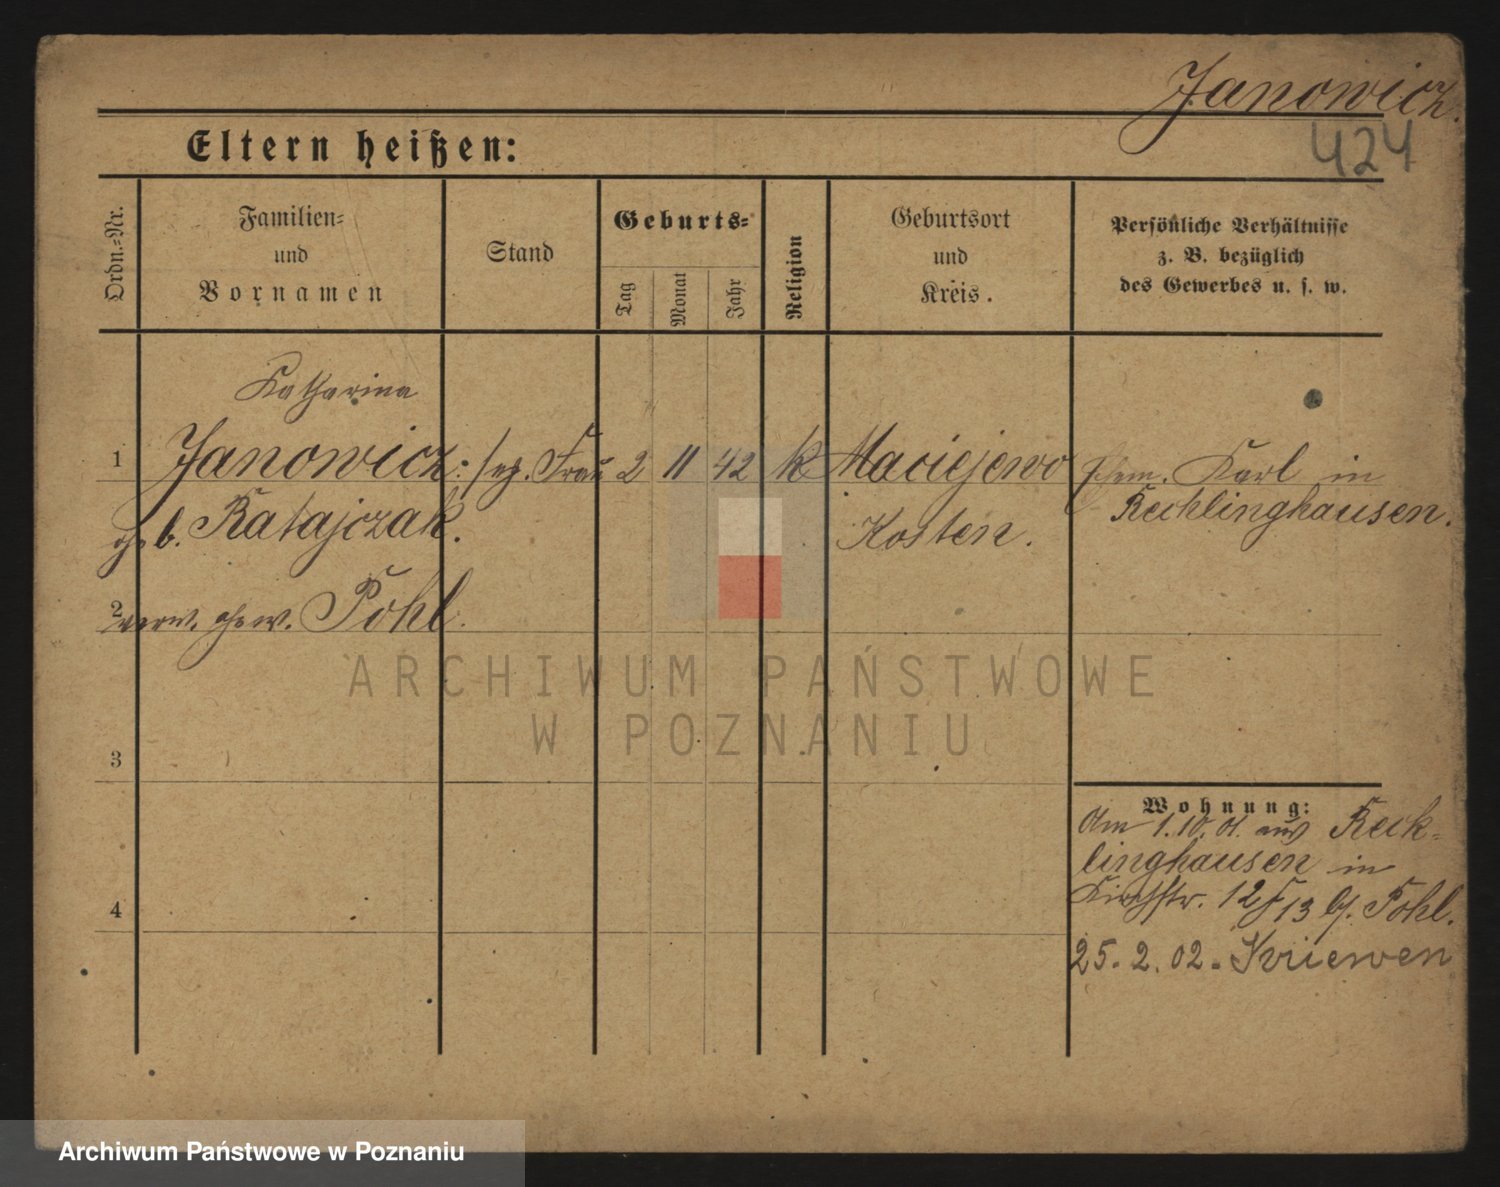 Janowicz.
424
Eltern heißen:
Ordn.-Nr.
Familien-
und
Vornamen
Stand
Geburts-
Tag
Monat
Jahr
Religion
Geburtsort
und
Kreis.
Persönliche Verhältnisse
z. B. bezüglich
des Gewerbes u. s. w.
Katharina
1 Janowicz. Frau 2 11 42 k Maciejewo Karl in
geb. Ratajczak. Kosten. Recklinghausen.
2 verw. gew. Pohl.
ARCHIWUM PAŃSTWOWE
W POZNANIU
3
Wohnung:
Am 1.10. 01. aus Reck-
linghausen in
4 Kirchstr. 12/13 b/. Pohl.
25. 2. 02. Kriewen
Archiwum Państwowe w Poznaniu